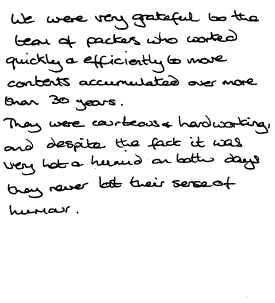 We were very grateful to the
team of packers who worked
quickly & efficiently to move
contents accumulated over more
than 30 years.
They were courteous & hardworking,
and despite the fact it was
very hot & humid on both days
they never lost their sense of
humour.